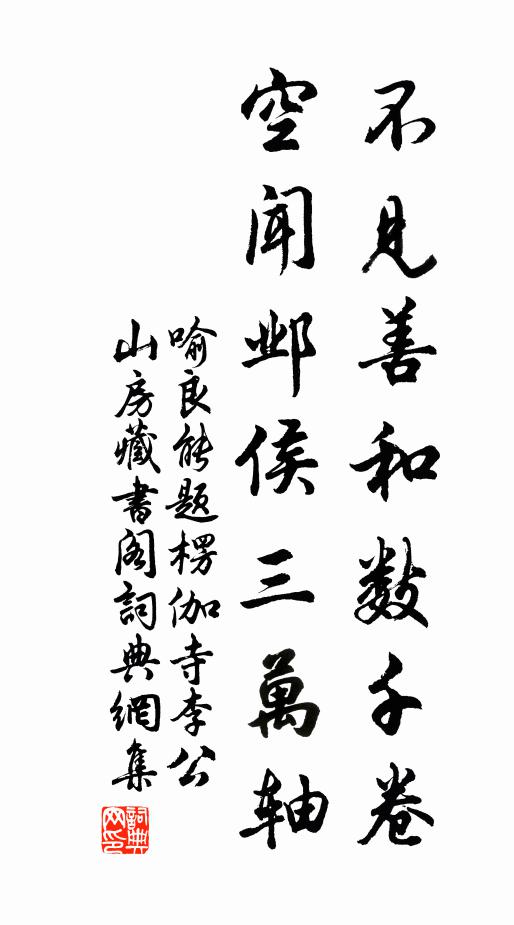 不見善和数千卷
空聞邺侯三萬轴
喻良能題楞伽寺李公
山房藏書阁詞典網集
詞典网印